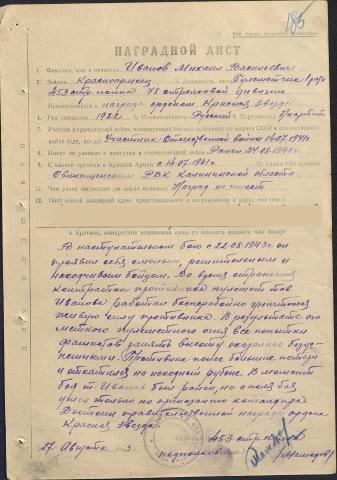 185
НАГРАДНОЙ ЛИСТ
1. Фамилия, имя и отчество Иванов Михаил Васильевич
2. Звание Красноармеец 3. Должность, часть Пулеметчик 1 роты
453 стр. полка 78 стрелковой дивизии
Представляется к награде орденом Красная Звезда
4. Год рождения 1922 5. Национальность Русский 6. Партийность
7. Участие в гражданской войне, последующих боевых действиях по защите СССР и отечественной
войне (где, когда) Участник Отечественной войны 14.07.1941г
8. Имеет ли ранения и контузии в отечественной войне Ранен 24.08.1943г.
9. С какого времени в Красной Армии с 14.07.1941г. 10. Каким РВК призван
РВК Калининской области
11. Чем ранее награжден (за какие отличия) Наград не имеет
12. Постоянный домашний адрес представляемого к награждению и адрес его семьи
I. Краткое, конкретное изложение личного боевого подвига или заслуг
В наступательном бою с 22.08.1943г. он
проявил себя смелым, решительным и
находчивым бойцом. Во время отражения
контратак противника пулемет тов.
Иванова работал бесперебойно уничтожая
живую силу противника. В результате его
меткого пулеметного огня все попытки
фашистов занять высоту оказались безус-
пешными. Противник понес большие потери
и откатился на исходный рубеж. В момент
боя т. Иванов был ранен, но с поля боя
ушел только по приказанию командира
Достоин правительственной награды ордена
Красная Звезда
453 стр. полка
27 Августа 3 подполковник (Мамедов)